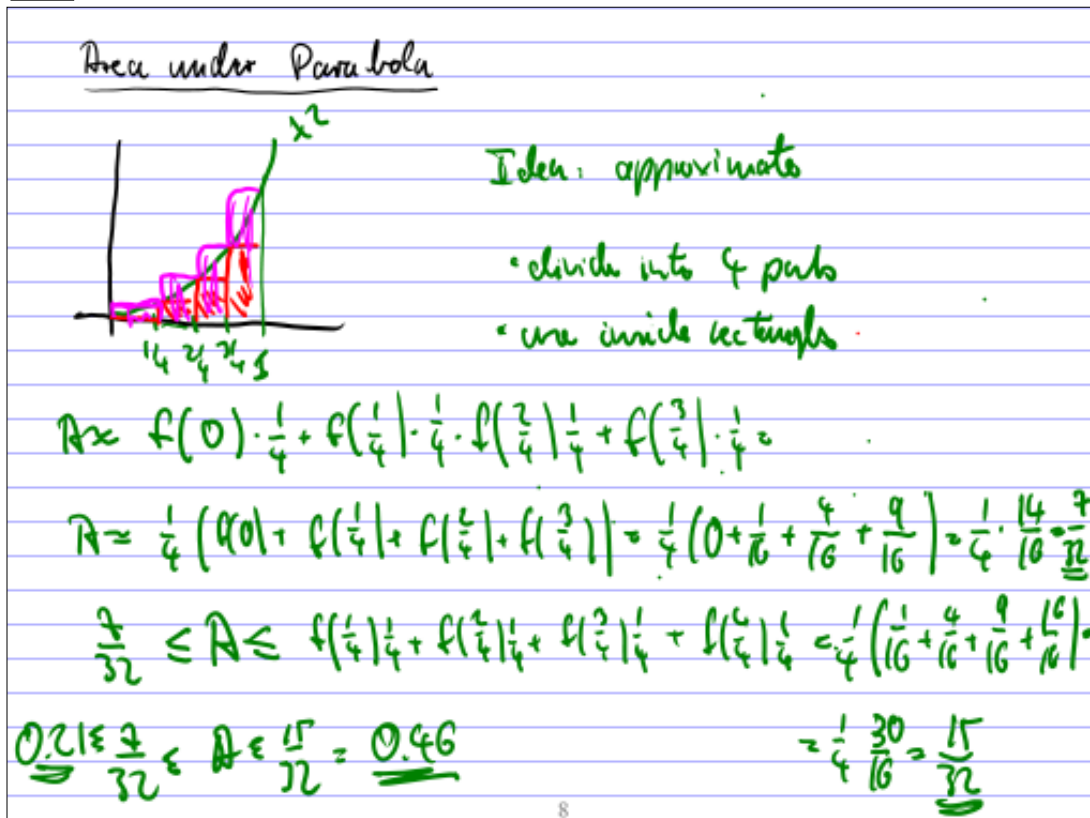 Area under Parabola
x²
Idea: approximate
• divide into 4 parts
• use inside rectangles
1/4 2/4 3/4 1
A ≈ f(0)·1/4 + f(1/4)·1/4 · f(2/4) 1/4 + f(3/4)·1/4 =
A ≈ 1/4 (f(0) + f(1/4) + f(2/4) + f(3/4)) = 1/4 (0 + 1/16 + 4/16 + 9/16) = 1/4 · 14/16 = 7/32
7/32 ≤ A ≤ f(1/4) 1/4 + f(2/4) 1/4 + f(3/4) 1/4 + f(4/4) 1/4 = 1/4 (1/16 + 4/16 + 9/16 + 16/16) =
= 1/4 30/16 = 15/32
0.21 ≤ 7/32 ≤ A ≤ 15/32 = 0.46
8